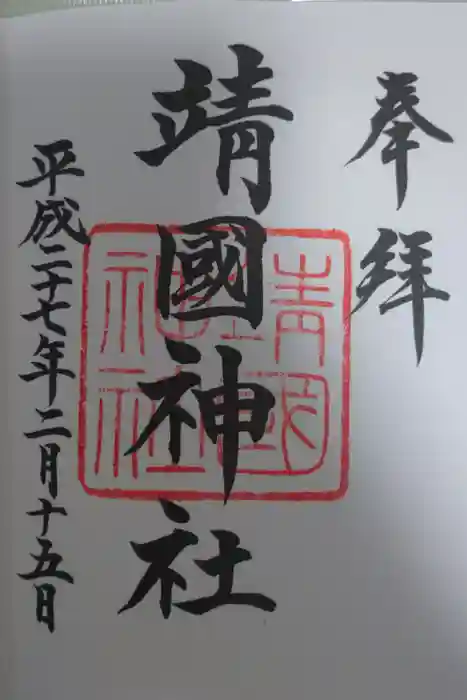 奉拝
靖國神社
平成二十七年二月十五日
靖國
神社